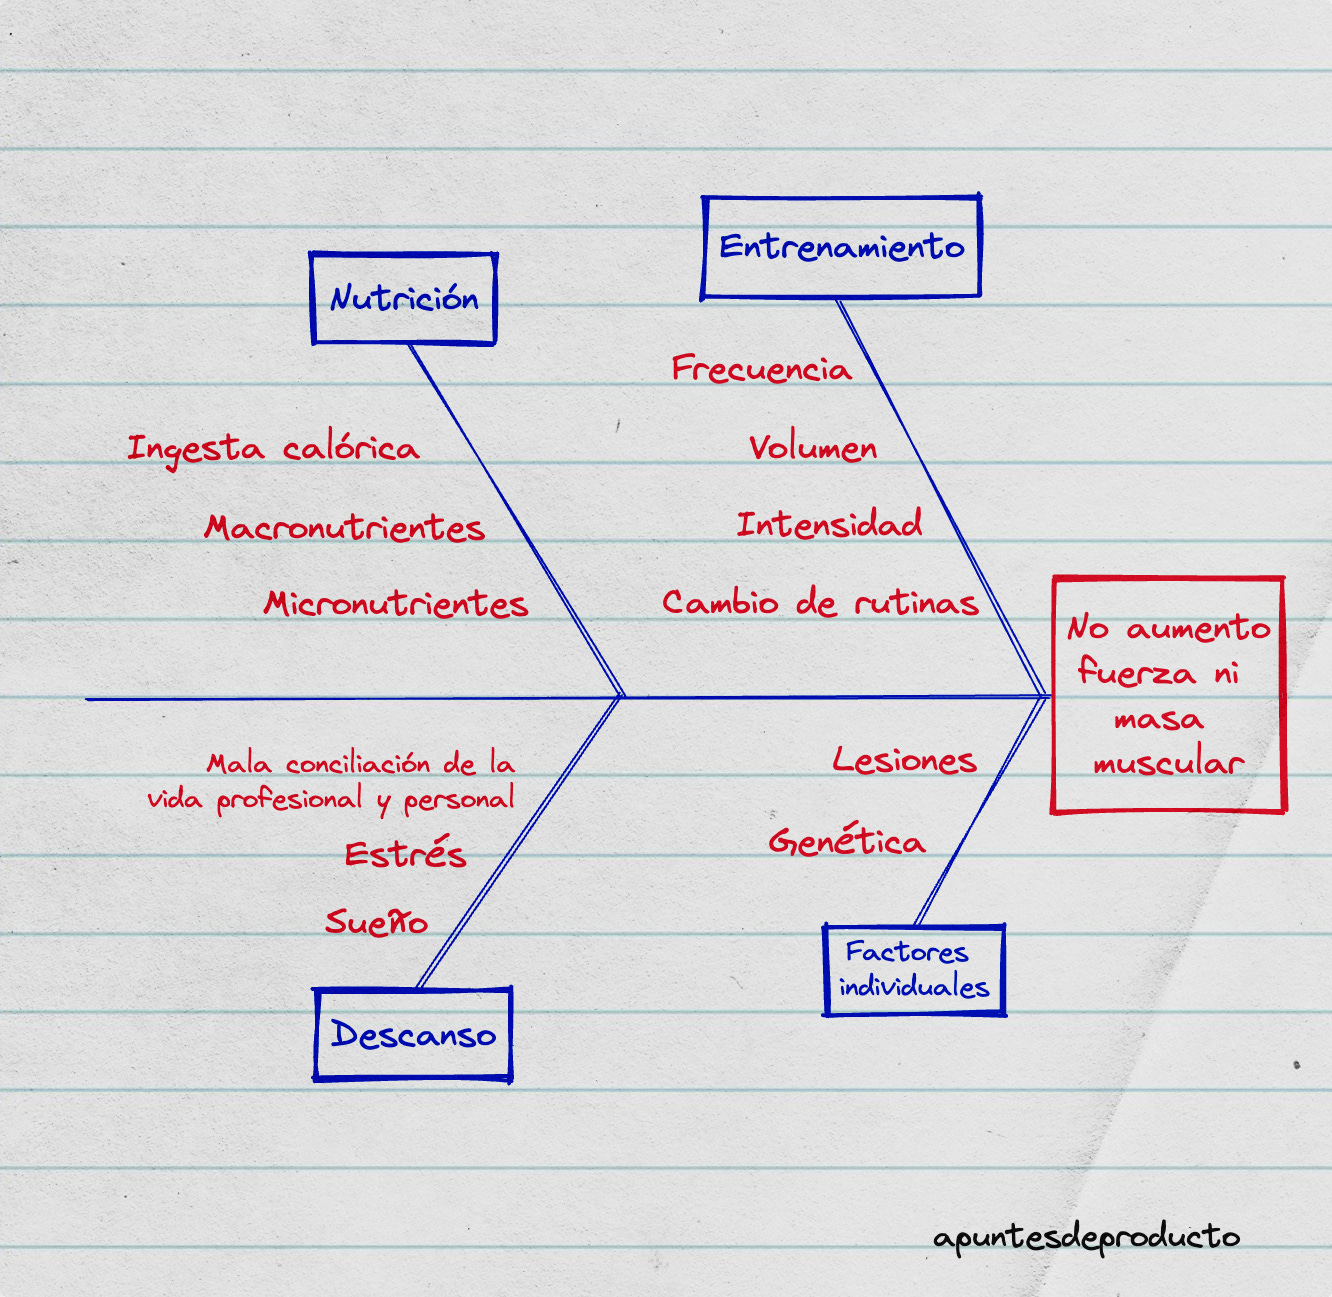 Entrenamiento
Nutrición
Frecuencia
Volumen
Intensidad
Cambio de rutinas
Ingesta calórica
Macronutrientes
Micronutrientes
No aumento
fuerza ni
masa
muscular
Mala conciliación de la
vida profesional y personal
Estrés
Sueño
Descanso
Lesiones
Genética
Factores
individuales
apuntesdeproducto